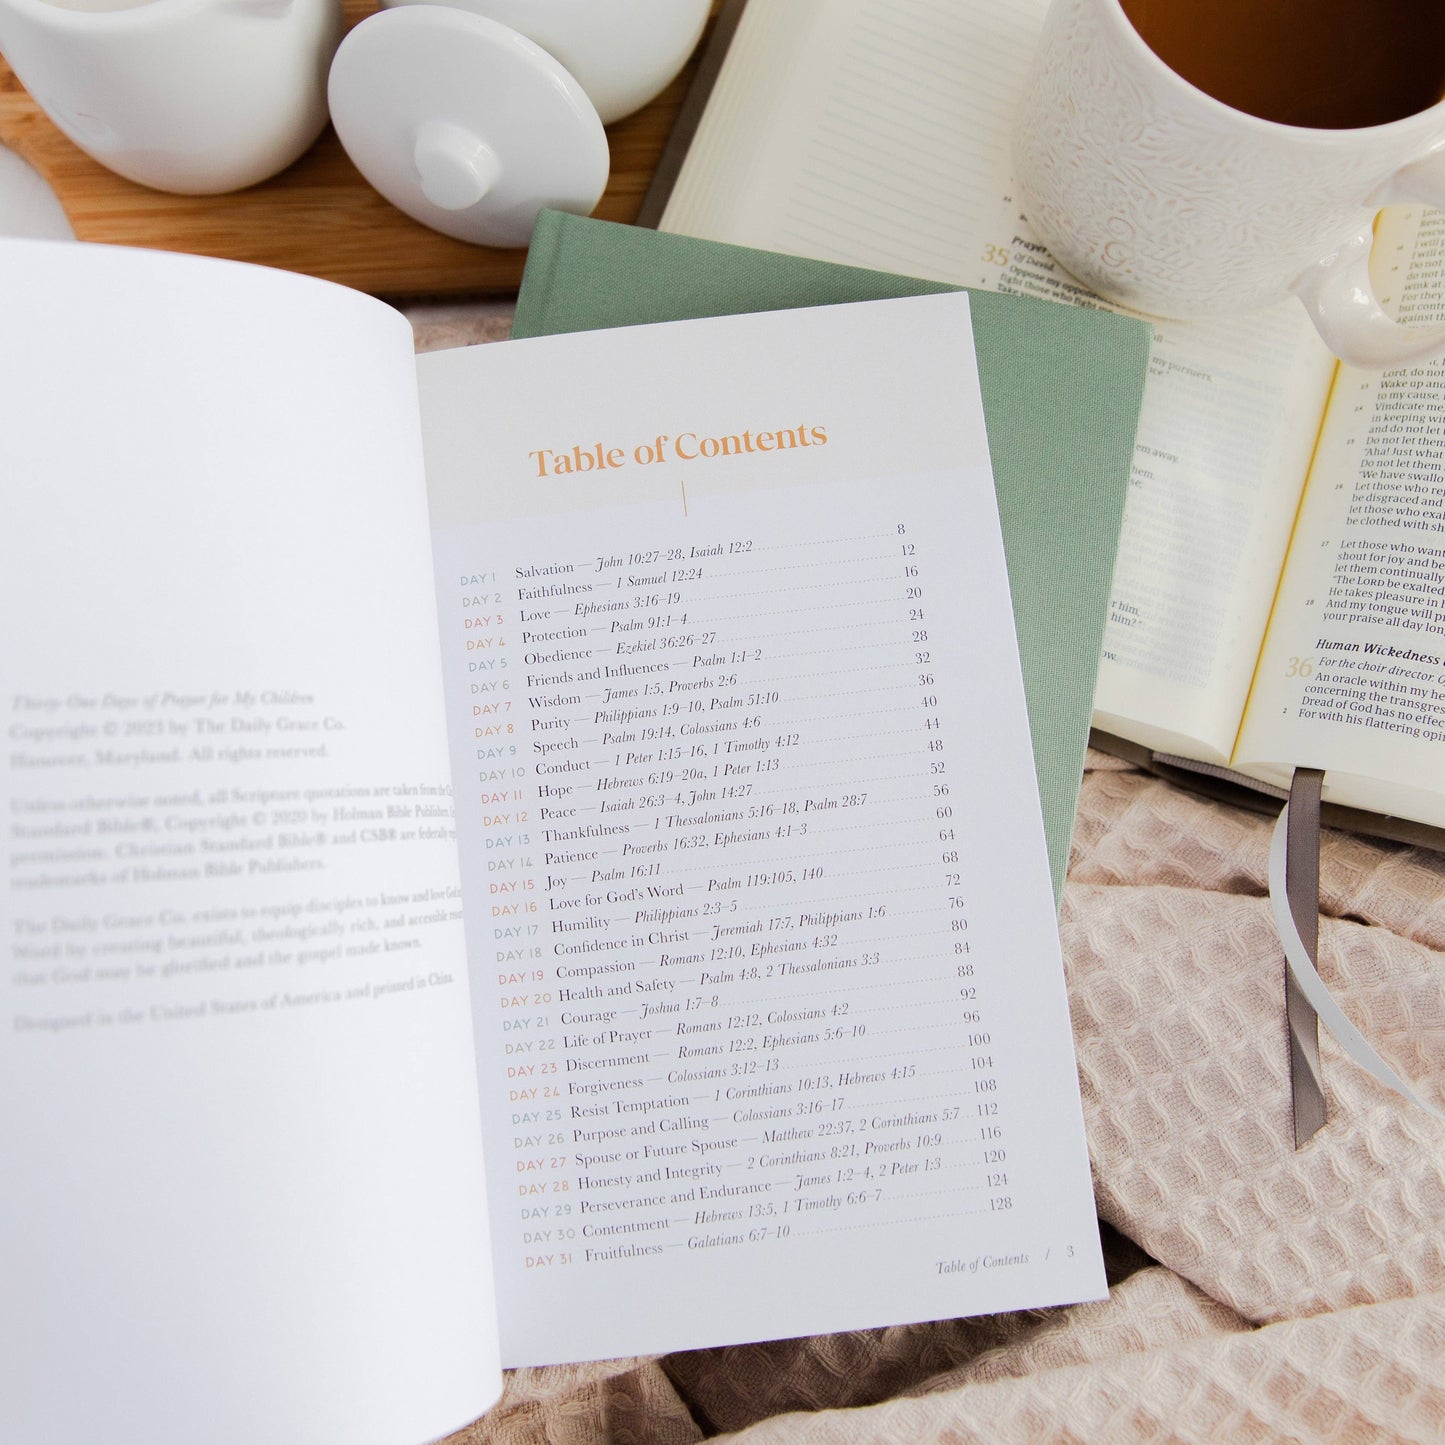 Thirty-One Days of Prayer for My Children
Copyright © 2023 by The Daily Grace Co.
Hanover, Maryland. All rights reserved.
Unless otherwise noted, all Scripture quotations are taken from the
Standard Bible®, Copyright © 2020 by Holman Bible Publishers
permission. Christian Standard Bible® and CSB® are federally
trademarks of Holman Bible Publishers.
The Daily Grace Co. exists to equip disciples to know and love God
Word by creating beautiful, theologically rich, and accessible
that God may be glorified and the gospel made known.
Designed in the United States of America and printed in China.
Table of Contents
DAY 1 Salvation — John 10:27–28, Isaiah 12:2 8
DAY 2 Faithfulness — 1 Samuel 12:24 12
DAY 3 Love — Ephesians 3:16–19 16
DAY 4 Protection — Psalm 91:1–4 20
DAY 5 Obedience — Ezekiel 36:26–27 24
DAY 6 Friends and Influences — Psalm 1:1–2 28
DAY 7 Wisdom — James 1:5, Proverbs 2:6 32
DAY 8 Purity — Philippians 1:9–10, Psalm 51:10 36
DAY 9 Speech — Psalm 19:14, Colossians 4:6 40
DAY 10 Conduct — 1 Peter 1:15–16, 1 Timothy 4:12 44
DAY 11 Hope — Hebrews 6:19–20a, 1 Peter 1:13 48
DAY 12 Peace — Isaiah 26:3–4, John 14:27 52
DAY 13 Thankfulness — 1 Thessalonians 5:16–18, Psalm 28:7 56
DAY 14 Patience — Proverbs 16:32, Ephesians 4:1–3 60
DAY 15 Joy — Psalm 16:11 64
DAY 16 Love for God's Word — Psalm 119:105, 140 68
DAY 17 Humility — Philippians 2:3–5 72
DAY 18 Confidence in Christ — Jeremiah 17:7, Philippians 1:6 76
DAY 19 Compassion — Romans 12:10, Ephesians 4:32 80
DAY 20 Health and Safety — Psalm 4:8, 2 Thessalonians 3:3 84
DAY 21 Courage — Joshua 1:7–8 88
DAY 22 Life of Prayer — Romans 12:12, Colossians 4:2 92
DAY 23 Discernment — Romans 12:2, Ephesians 5:6–10 96
DAY 24 Forgiveness — Colossians 3:12–13 100
DAY 25 Resist Temptation — 1 Corinthians 10:13, Hebrews 4:15 104
DAY 26 Purpose and Calling — Colossians 3:16–17 108
DAY 27 Spouse or Future Spouse — Matthew 22:37, 2 Corinthians 5:7 112
DAY 28 Honesty and Integrity — 2 Corinthians 8:21, Proverbs 10:9 116
DAY 29 Perseverance and Endurance — James 1:2–4, 2 Peter 1:3 120
DAY 30 Contentment — Hebrews 13:5, 1 Timothy 6:6–7 124
DAY 31 Fruitfulness — Galatians 6:7–10 128
Table of Contents / 3
Prayer
35 Of David.
Oppose my
fight those who fight me
all—
my pursuers,
em away.
hem.
r him,
him?"
ow.
I will
Do not
do not l
wink at
For they
but contr
against th
Lord, do not
23 Wake up and
to my cause,
24 Vindicate me,
in keeping wi
and do not let
25 Do not let them
"Aha! Just what
Do not let them
"We have swallo
26 Let those who re
be disgraced and
let those who exa
be clothed with sh
27 Let those who want
shout for joy and be
let them continually
"The LORD be exalted
He takes pleasure in h
28 And my tongue will p
your praise all day lon
Human Wickedness
36 For the choir director.
An oracle within my he
concerning the transgres
Dread of God has no effec
2 For with his flattering opin